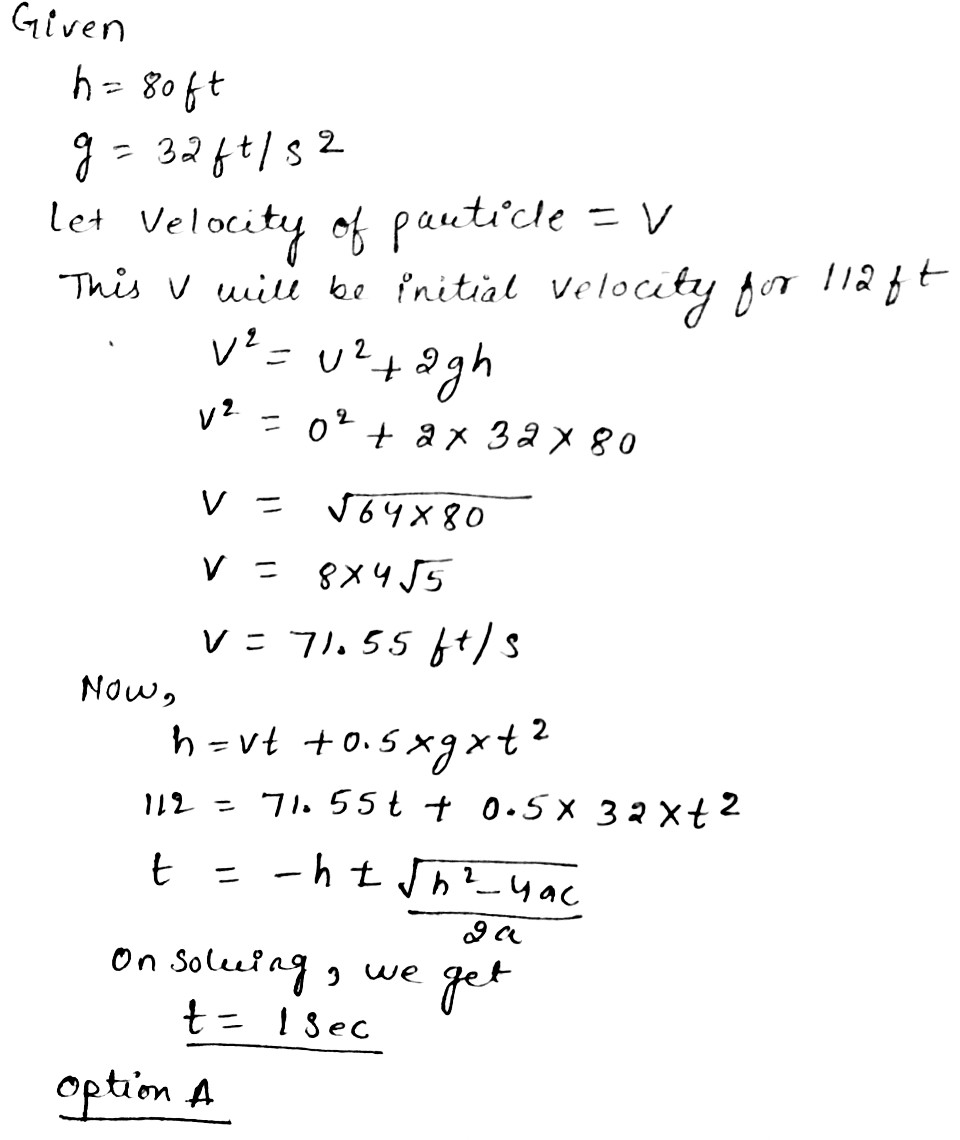 Given
h = 80ft
g = 32ft/s2
Let Velocity of particle = V
This V will be initial velocity for 112ft
V² = U² + 2gh
V² = 0² + 2 × 32 × 80
V = √64×80
V = 8×4√5
V = 71.55 ft/s
Now,
h = vt + 0.5×g×t²
112 = 71.55t + 0.5 × 32 × t2
t = -h ± √h²-4ac
2a
On Solving, we get
t = 1 sec
Option A